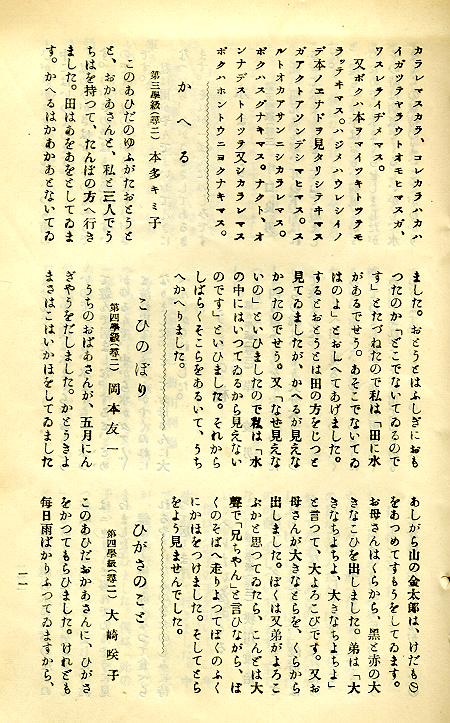 カラレマスカラ、コレカラハカハ
イガツテヤラウトオモヒマスガ、
ワスレライヂメマス。
又ボクハ本ヲマイツキトツテモ
ラッテキマス。ハジメハウレシイノ
デ本ノエナドヲ見タリシテヰマス
ガアクトアソンデシマヒマス。ス
ルトオカアサンニシカラレマス。
ボクハスグナキマス。ナクト、オ
ンナデストイツテ又シカラレマス
ボクハホントウニヨクナキマス。
かへる
第三學級(尋二) 本多キミ子
このあひだのゆふがたおとうと
と、おかあさんと、私と三人でう
ちはを持つて、たんぼの方へ行き
ました。田はあをあをとしてゐま
す。かへるはかあかあとないてゐ
ました。おとうとはふしぎにおも
つたのか「どこでないてゐるので
す」とたづねたので私は「田に水
があるでせう。あそこでないてゐ
はのよ」とおしへてあげました。
するとおとうとは田の方をじつと
見てゐましたが、かへるが見えな
かつたのでせう。又「なぜ見えな
いの」といひましたので私は「水
の中にはいつてゐるから見えない
のです」といひました。それから
しばらくそこらをあるいて、うち
へかへりました。
こひのぼり
第四學級(尋二) 岡本友一
うちのおばあさんが、五月にん
ぎやうをだしました。かとうきよ
まさはこはいかほをしてゐました
あしがら山の金太郎は、けだもの
をあつめてすもうをしてゐます。
お母さんはくらから、黑と赤の大
きなこひを出しました。弟は「大
きなちよちよ、大きなちよちよ」
と言つて、大よろこびです。又お
母さんが大きなとらを、くらから
出しました。ぼくは又弟がよろこ
ぶかと思つてゐたら、こんどは大
聲で「兄ちやん」と言ひながら、ぼ
くのそばへ走りよつてぼくのふく
にかほをつけました。そしてとら
をよう見ませんでした。
ひがさのこと
第四學級(尋二) 大崎咲子
このあひだおかあさんに、ひがさ
をかつてもらひました。けれども
毎日雨ばかりふつてゐますから、
一一